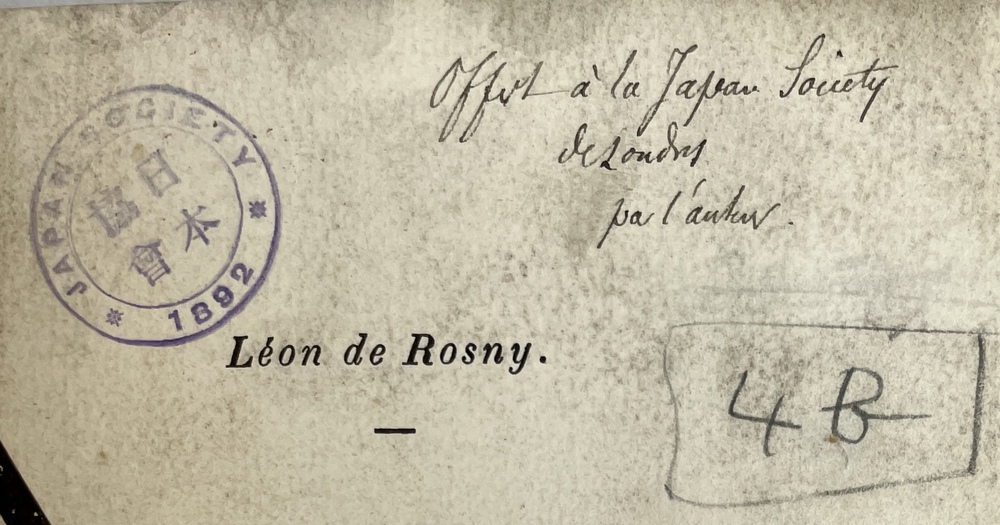 Offert à la Japan Society
de Londres
par l'auteur.
JAPAN SOCIETY
日本
協會
1892
Léon de Rosny.
4 B